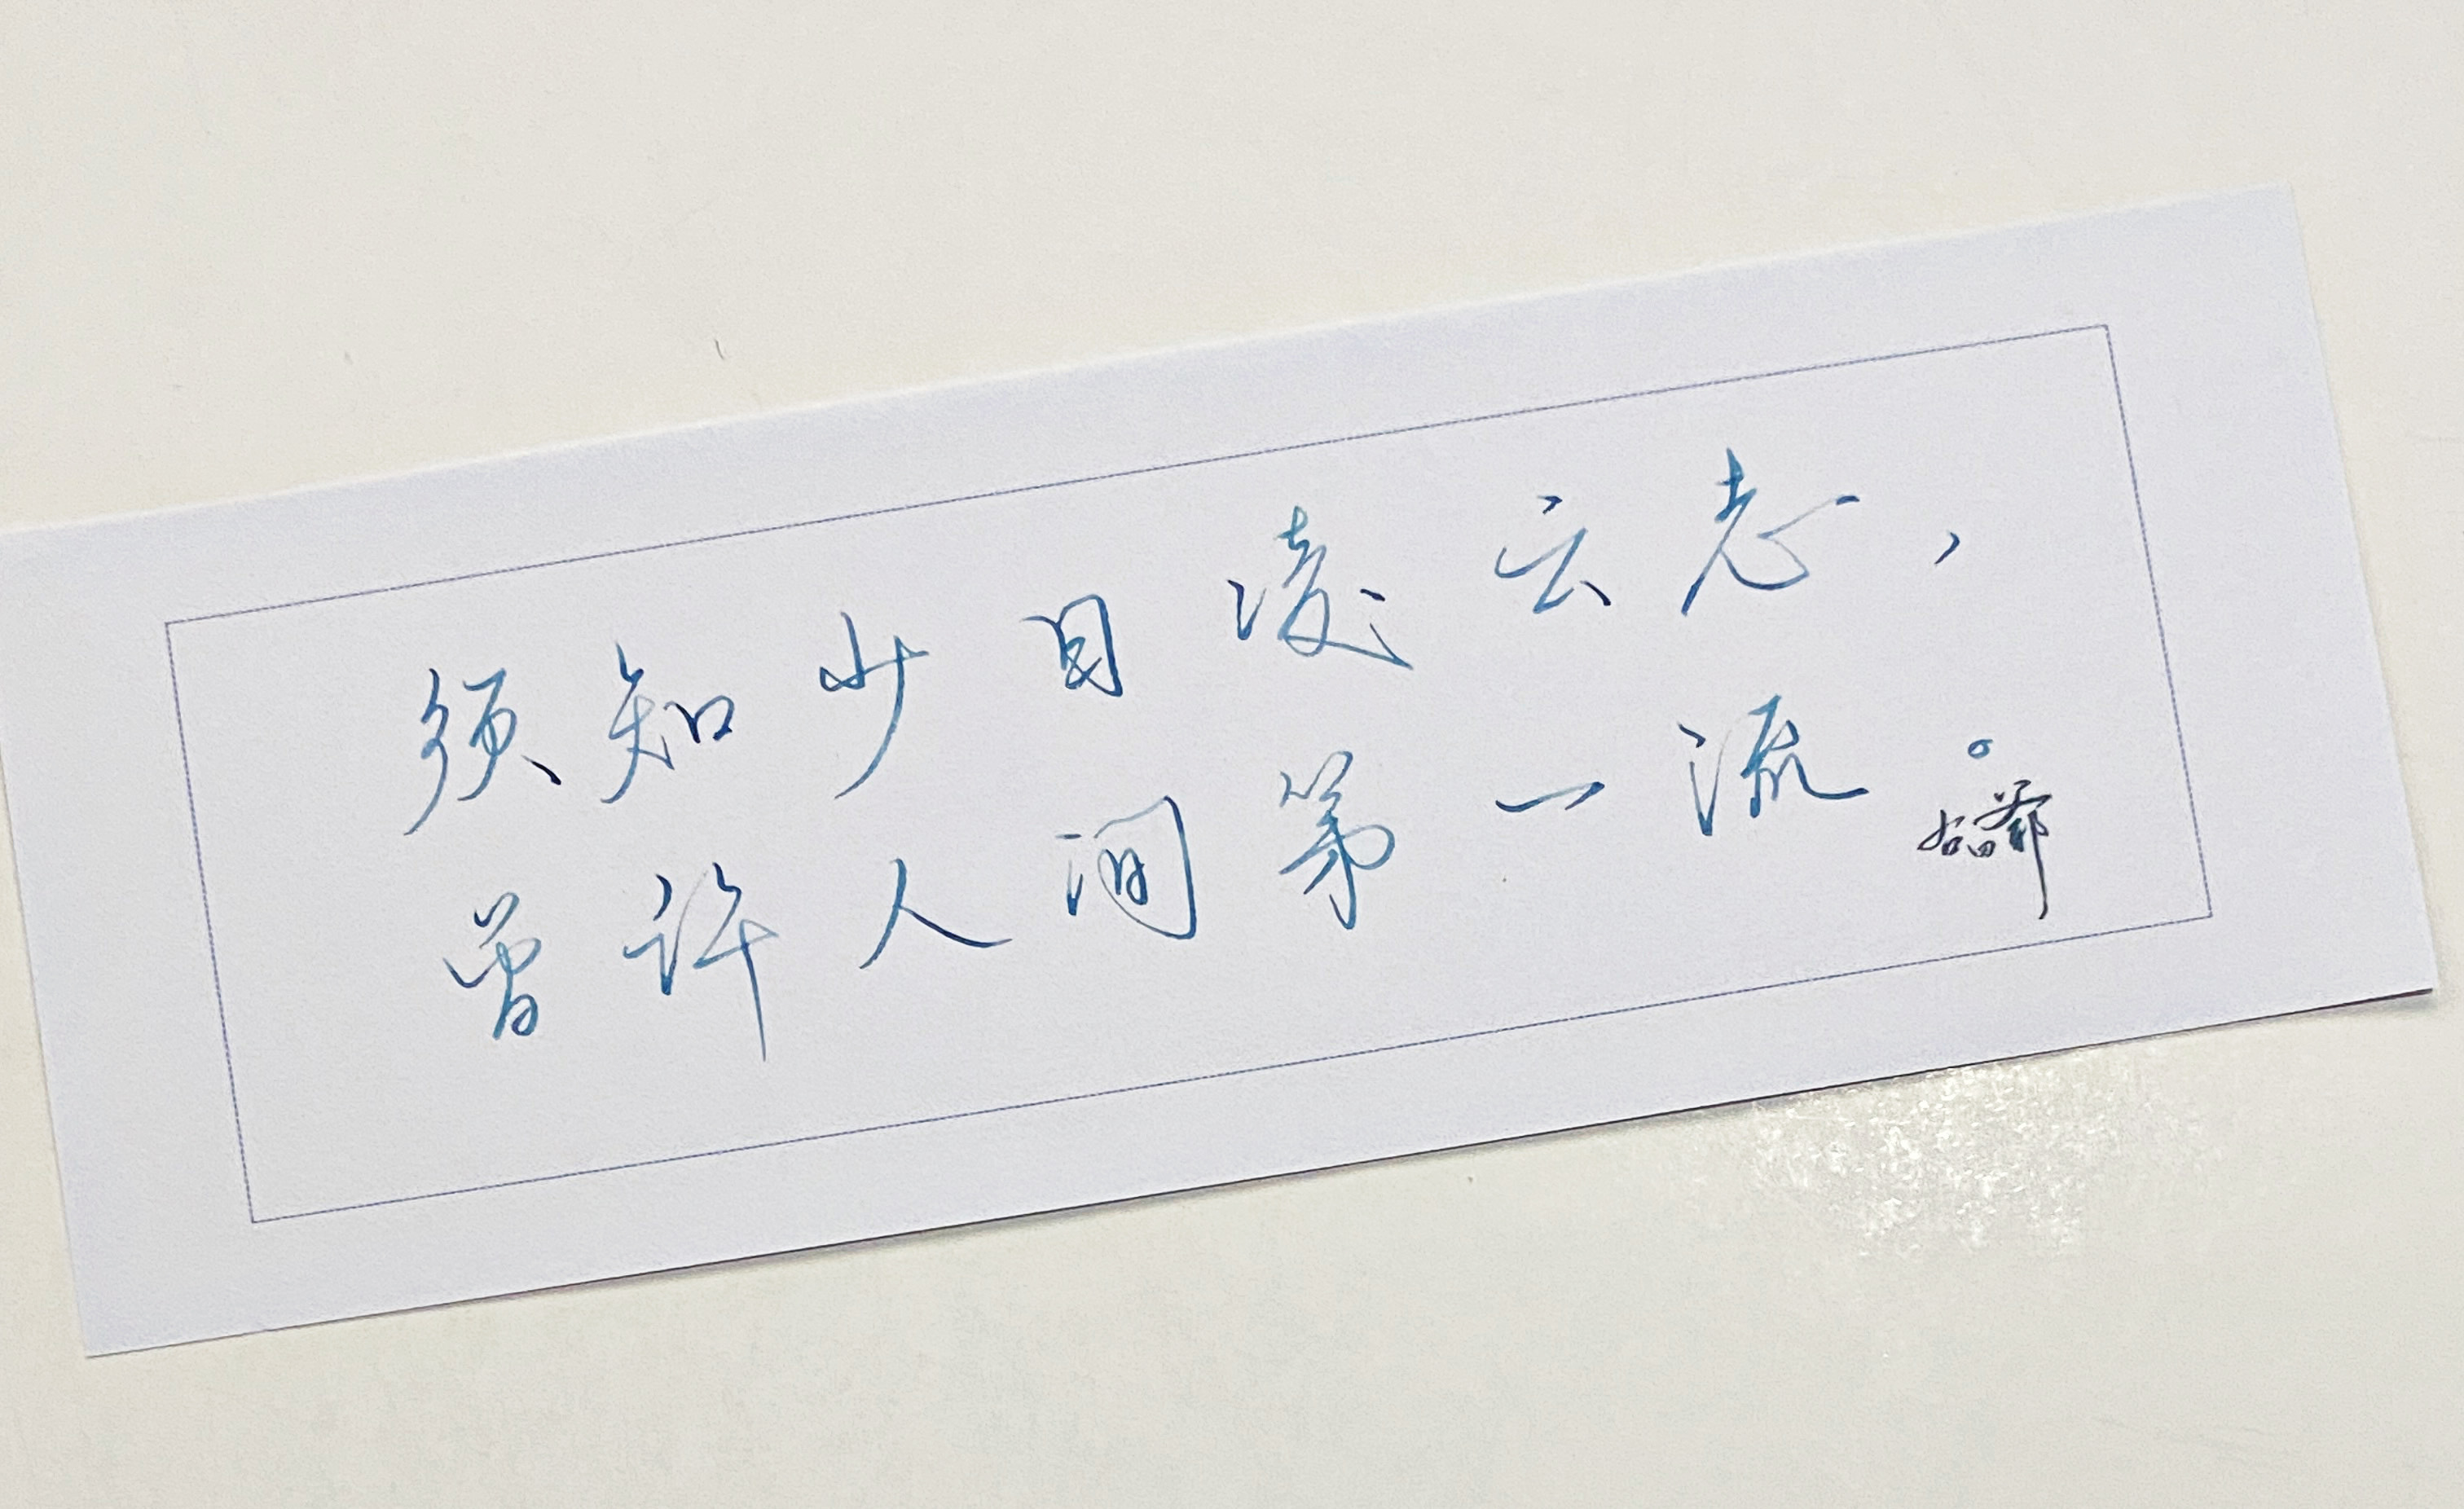 须知少日凌云志，
曾许人间第一流。